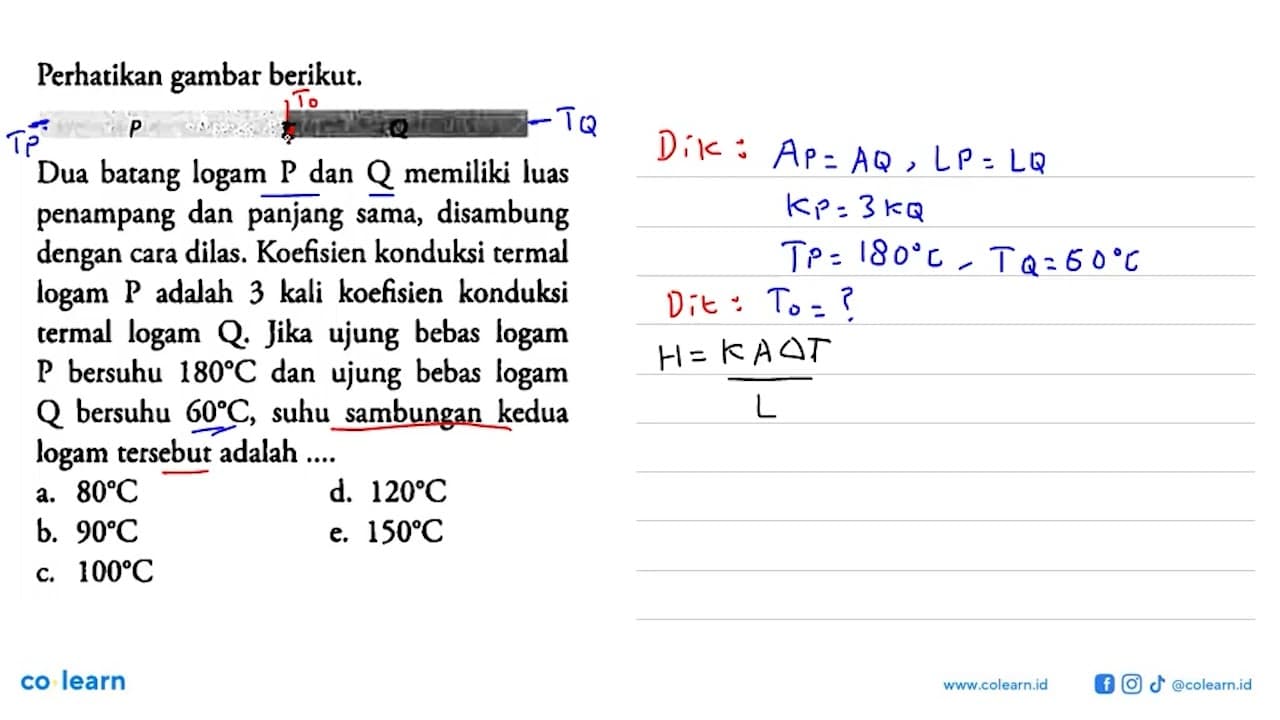 Perhatikan gambar berikut.
To
TP P Q TQ
Dua batang logam P dan Q memiliki luas
penampang dan panjang sama, disambung
dengan cara dilas. Koefisien konduksi termal
logam P adalah 3 kali koefisien konduksi
termal logam Q. Jika ujung bebas logam
P bersuhu 180°C dan ujung bebas logam
Q bersuhu 60°C, suhu sambungan kedua
logam tersebut adalah ....
a. 80°C d. 120°C
b. 90°C e. 150°C
c. 100°C
Dik : AP = AQ , LP = LQ
KP = 3 KQ
TP = 180°C - TQ = 60°C
Dit : To = ?
H = K A ΔT
L
co learn
www.colearn.id @colearn.id